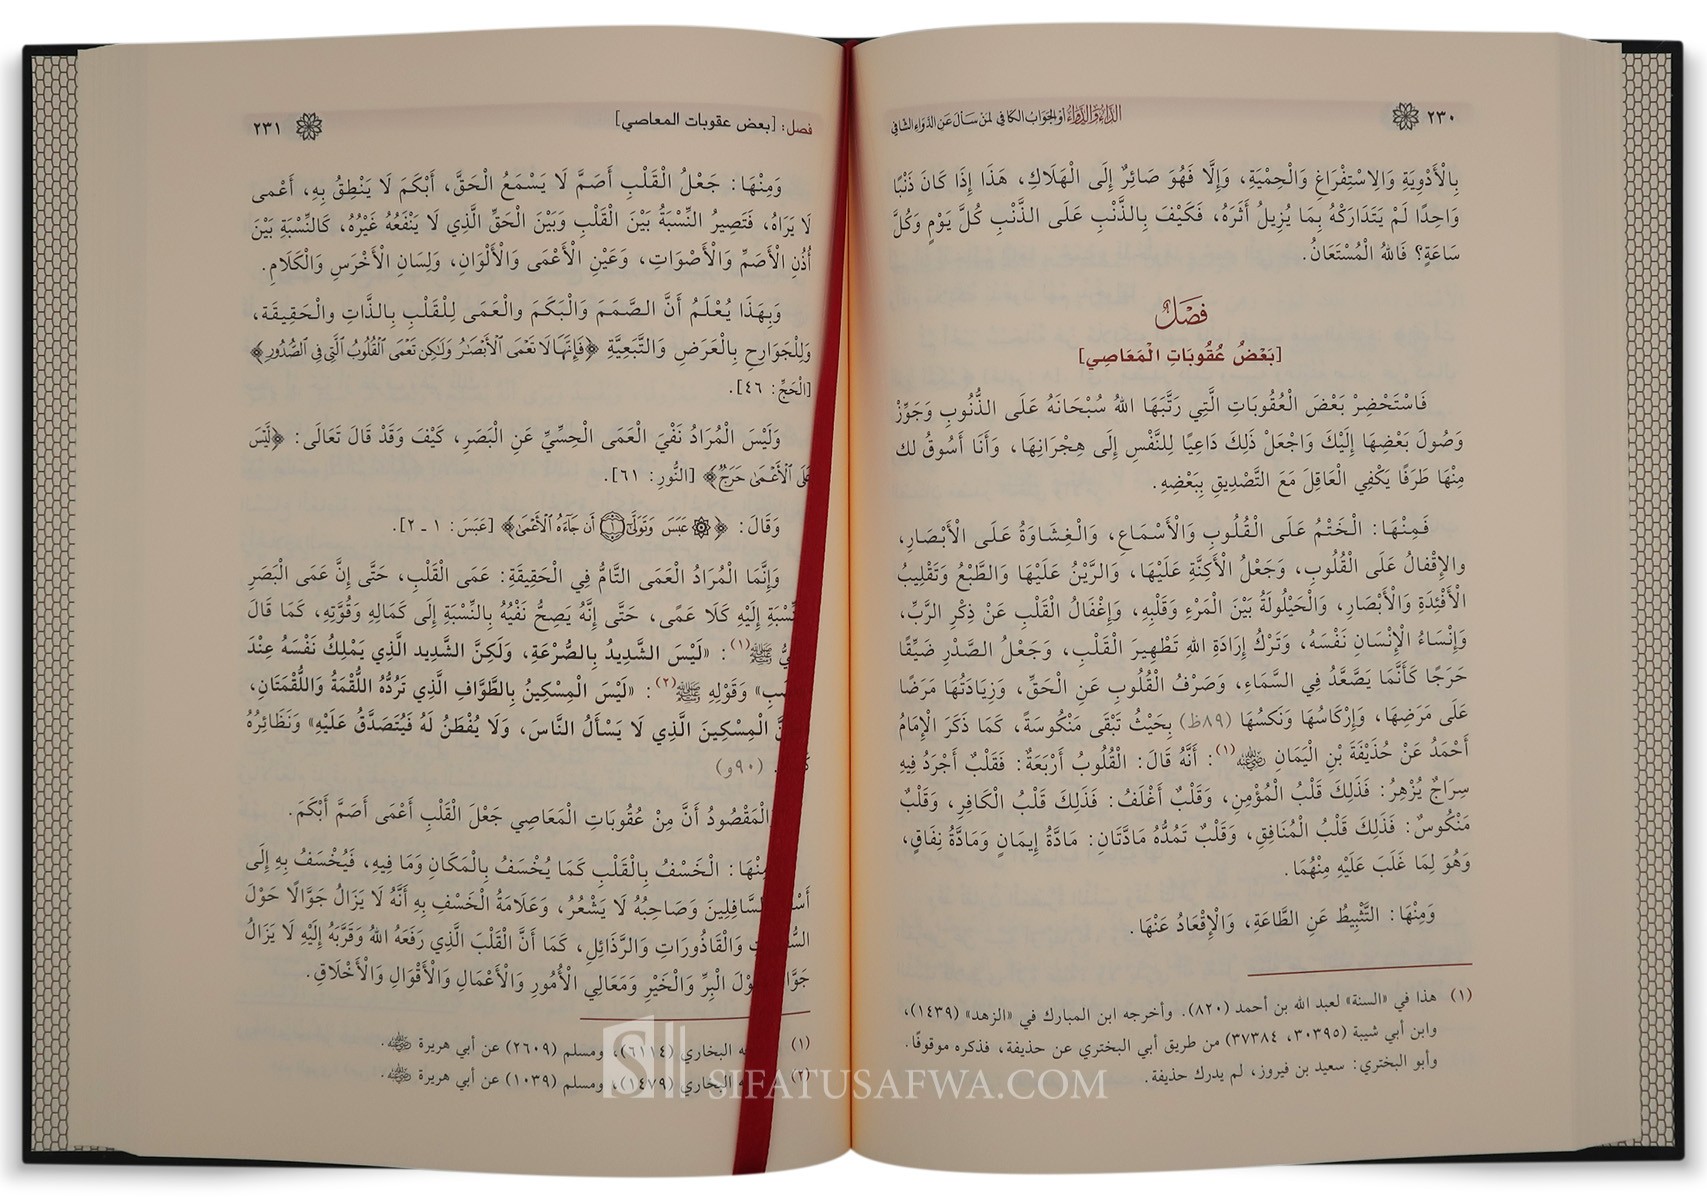 ٢٣٠ الدَّاءُ وَالدَّوَاءُ أَوِ الجَوَابُ الكَافِي لِمَنْ سَأَلَ عَنِ الدَّوَاءِ الشَّافِي
بِالْأَدْوِيَةِ وَالِاسْتِفْرَاغِ وَالْحِمْيَةِ، وَإِلَّا فَهُوَ صَائِرٌ إِلَى الْهَلَاكِ، هَذَا إِذَا كَانَ ذَنْبًا
وَاحِدًا لَمْ يَتَدَارَكْهُ بِمَا يُزِيلُ أَثَرَهُ، فَكَيْفَ بِالذَّنْبِ عَلَى الذَّنْبِ كُلَّ يَوْمٍ وَكُلَّ
سَاعَةٍ؟ فَاللهُ الْمُسْتَعَانُ.
فَصْلٌ
[بَعْضُ عُقُوبَاتِ الْمَعَاصِي]
فَاسْتَحْضِرْ بَعْضَ الْعُقُوبَاتِ الَّتِي رَتَّبَهَا اللهُ سُبْحَانَهُ عَلَى الذُّنُوبِ وَجَوِّزْ
وَصُولَ بَعْضِهَا إِلَيْكَ وَاجْعَلْ ذَلِكَ دَاعِيًا لِلنَّفْسِ إِلَى هِجْرَانِهَا، وَأَنَا أَسُوقُ لك
مِنْهَا طَرَفًا يَكْفِي الْعَاقِلَ مَعَ التَّصْدِيقِ بِبَعْضِهِ.
فَمِنْهَا: الْخَتْمُ عَلَى الْقُلُوبِ وَالْأَسْمَاعِ، وَالْغِشَاوَةُ عَلَى الْأَبْصَارِ،
والإِقْفالُ عَلَى الْقُلُوبِ، وَجَعْلُ الْأَكِنَّةِ عَلَيْهَا، وَالرَّيْنُ عَلَيْهَا وَالطَّبْعُ وَتَقْلِيبُ
الْأَفْئِدَةِ وَالْأَبْصَارِ، وَالْحَيْلُولَةُ بَيْنَ الْمَرْءِ وَقَلْبِهِ، وَإِغْفَالُ الْقَلْبِ عَنْ ذِكْرِ الرَّبِّ،
وَإِنْسَاءُ الْإِنْسَانِ نَفْسَهُ، وَتَرْكُ إِرَادَةِ اللهِ تَطْهِيرَ الْقَلْبِ، وَجَعْلُ الصَّدْرِ ضَيِّقًا
حَرَجًا كَأَنَّمَا يَصَّعَّدُ فِي السَّمَاءِ، وَصَرْفُ الْقُلُوبِ عَنِ الْحَقِّ، وَزِيَادَتُهَا مَرَضًا
عَلَى مَرَضِهَا، وَإِرْكَاسُهَا وَنَكسُهَا (٨٩ظ) بِحَيْثُ تَبْقَى مَنْكُوسَةً، كَمَا ذَكَرَ الْإِمَامُ
أَحْمَدُ عَنْ حُذَيْفَةَ بْنِ الْيَمَانِ رضي الله عنه(١): أَنَّهُ قَالَ: الْقُلُوبُ أَرْبَعَةٌ: فَقَلْبٌ أَجْرَدُ فِيهِ
سِرَاجٌ يُزْهِرُ: فَذَلِكَ قَلْبُ الْمُؤْمِنِ، وَقَلْبٌ أَغْلَفُ: فَذَلِكَ قَلْبُ الْكَافِرِ، وَقَلْبٌ
مَنْكُوسٌ: فَذَلِكَ قَلْبُ الْمُنَافِقِ، وَقَلْبٌ تَمُدُّهُ مَادَّتَانِ: مَادَّةُ إِيمَانٍ وَمَادَّةُ نِفَاقٍ،
وَهُوَ لِمَا غَلَبَ عَلَيْهِ مِنْهُمَا.
وَمِنْهَا: التَّثْبِيطُ عَنِ الطَّاعَةِ، وَالْإِقْعَادُ عَنْهَا.
(١) هذا في «السنة» لعبد الله بن أحمد (٨٢٠). وأخرجه ابن المبارك في «الزهد» (١٤٣٩)،
وابن أبي شيبة (٣٠٣٩٥، ٣٧٣٨٤) من طريق أبي البختري عن حذيفة، فذكره موقوفًا.
وأبو البختري: سعيد بن فيروز، لم يدرك حذيفة.
فصل: [بعض عقوبات المعاصي] ٢٣١
وَمِنْهَا: جَعْلُ الْقَلْبِ أَصَمَّ لَا يَسْمَعُ الْحَقَّ، أَبْكَمَ لَا يَنْطِقُ بِهِ، أَعْمى
لَا يَرَاهُ، فَتَصِيرُ النِّسْبَةُ بَيْنَ الْقَلْبِ وَبَيْنَ الْحَقِّ الَّذِي لَا يَنْفَعُهُ غَيْرُهُ، كَالنِّسْبَةِ بَيْنَ
أُذُنِ الْأَصَمِّ وَالْأَصْوَاتِ، وَعَيْنِ الْأَعْمَى وَالْأَلْوَانِ، وَلِسَانِ الْأَخْرَسِ وَالْكَلَامِ.
وَبِهَذَا يُعْلَمُ أَنَّ الصَّمَمَ وَالْبَكَمَ والْعَمَى لِلْقَلْبِ بِالذَّاتِ والْحَقِيقَةِ،
وَلِلْجَوَارِحِ بِالْعَرَضِ وَالتَّبَعِيَّةِ ﴿فَإِنَّهَا لَا تَعْمَى ٱلْأَبْصَٰرُ وَلَٰكِن تَعْمَى ٱلْقُلُوبُ ٱلَّتِي فِي ٱلصُّدُورِ﴾
[الْحَجِّ: ٤٦].
وَلَيْسَ الْمُرَادُ نَفْيَ الْعَمَى الْحِسِّيِّ عَنِ الْبَصَرِ، كَيْفَ وَقَدْ قَالَ تَعَالَى: ﴿لَّيْسَ
عَلَى ٱلْأَعْمَىٰ حَرَجٌ﴾ [النُّورِ: ٦١].
وَقَالَ: ﴿عَبَسَ وَتَوَلَّىٰٓ ١ أَن جَآءَهُ ٱلْأَعْمَىٰ﴾ [عَبَسَ: ١ ـ ٢].
وَإِنَّمَا الْمُرَادُ الْعَمَى التَّامُّ فِي الْحَقِيقَةِ: عَمَى الْقَلْبِ، حَتَّى إِنَّ عَمَى الْبَصَرِ
إِلَيْهِ كَلَا عَمًى، حَتَّى إِنَّهُ يَصِحُّ نَفْيُهُ بِالنِّسْبَةِ إِلَى كَمَالِهِ وَقُوَّتِهِ، كَمَا قَالَ
ﷺ(١): «لَيْسَ الشَّدِيدُ بِالصُّرْعَةِ، وَلَكِنَّ الشَّدِيد الَّذِي يَمْلِكُ نَفْسَهُ عِنْدَ
وَقَوْلِهِ ﷺ(٢): «لَيْسَ الْمِسْكِينُ بِالطَّوَّافِ الَّذِي تَرُدُّهُ اللُّقْمَةُ وَاللُّقْمَتَانِ،
الْمِسْكِينَ الَّذِي لَا يَسْأَلُ النَّاسَ، وَلَا يُفْطَنُ لَهُ فَيُتَصَدَّقُ عَلَيْهِ» وَنَظَائِرُهُ
(٩٠و)
الْمَقْصُودُ أَنَّ مِنْ عُقُوبَاتِ الْمَعَاصِي جَعْلَ الْقَلْبِ أَعْمَى أَصَمَّ أَبْكَمَ.
الْخَسْفُ بِالْقَلْبِ كَمَا يُخْسَفُ بِالْمَكَانِ وَمَا فِيهِ، فَيُخْسَفُ بِهِ إِلَى
السَّافِلِينَ وَصَاحِبُهُ لَا يَشْعُرُ، وَعَلَامَةُ الْخَسْفِ بِهِ أَنَّهُ لَا يَزَالُ جَوَّالًا حَوْلَ
وَالْقَاذُورَاتِ وَالرَّذَائِلِ، كَمَا أَنَّ الْقَلْبَ الَّذِي رَفَعَهُ اللهُ وَقَرَّبَهُ إِلَيْهِ لَا يَزَالُ
الْبِرِّ وَالْخَيْرِ وَمَعَالِي الْأُمُورِ وَالْأَعْمَالِ وَالْأَقْوَالِ وَالْأَخْلَاقِ.
(١) البخاري (٦١١٤)، ومسلم (٢٦٠٩) عن أبي هريرة رضي الله عنه.
(٢) البخاري (١٤٧٩)، ومسلم (١٠٣٩) عن أبي هريرة رضي الله عنه.
SIFATUSAFWA.COM